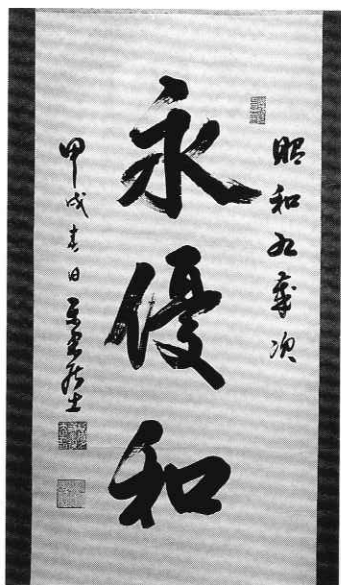 昭和九歳次
永優和
甲戌春日 居士